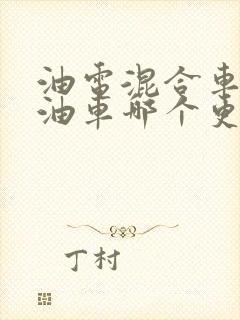 油電混合車
油車哪个更
丁村